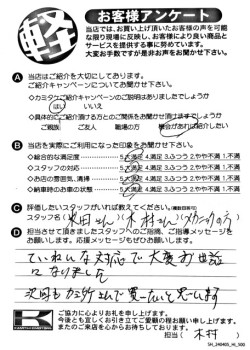 軽
お客様アンケート
当店では、お買い上げ頂いたお客様の声を可能
な限り現場に反映し、お客様により良い商品と
サービスを提供する事に努めています。
大変お手数ですが是非お声をお聞かせ下さい。
A 当店はご紹介を大切にしております。
ご紹介キャンペーンについてお聞かせ下さい。
◇カミタケご紹介キャンペーンのご説明はありましたでしょうか
はい いいえ
◇具体的にご紹介頂ける方とのご関係をお聞かせ頂けますでしょうか
ご親族 ご友人 職場の方 機会があれば紹介したい
B 当店を実際にご利用になった印象をお聞かせ下さい。
◇総合的な満足度 5.大満足 4.満足 3.ふつう 2.やや不満 1.不満
◇スタッフの対応 5.大満足 4.満足 3.ふつう 2.やや不満 1.不満
◇お店の雰囲気、清掃 5.大満足 4.満足 3.ふつう 2.やや不満 1.不満
◇納車時のお車の状態 5.大満足 4.満足 3.ふつう 2.やや不満 1.不満
C 評価したいスタッフがいれば教えてください。(複数回答可)
スタッフ名( 米田さん 木村さん メカニックの方 )
D 担当させて頂きましたスタッフへのご指摘、ご指導メッセージを
お願いします。応援メッセージもぜひお願いします。
ていねいな対応で大変お世話
になりました
次回もカミタケさんで買いたいと思います
ご協力に心よりお礼を申し上げます。
今後とも宜しくお引き立てご愛顧の程お願い申し上げます。
またのご来店を心からお待ちしております。
担当( 木村
SH_240405_HI_500